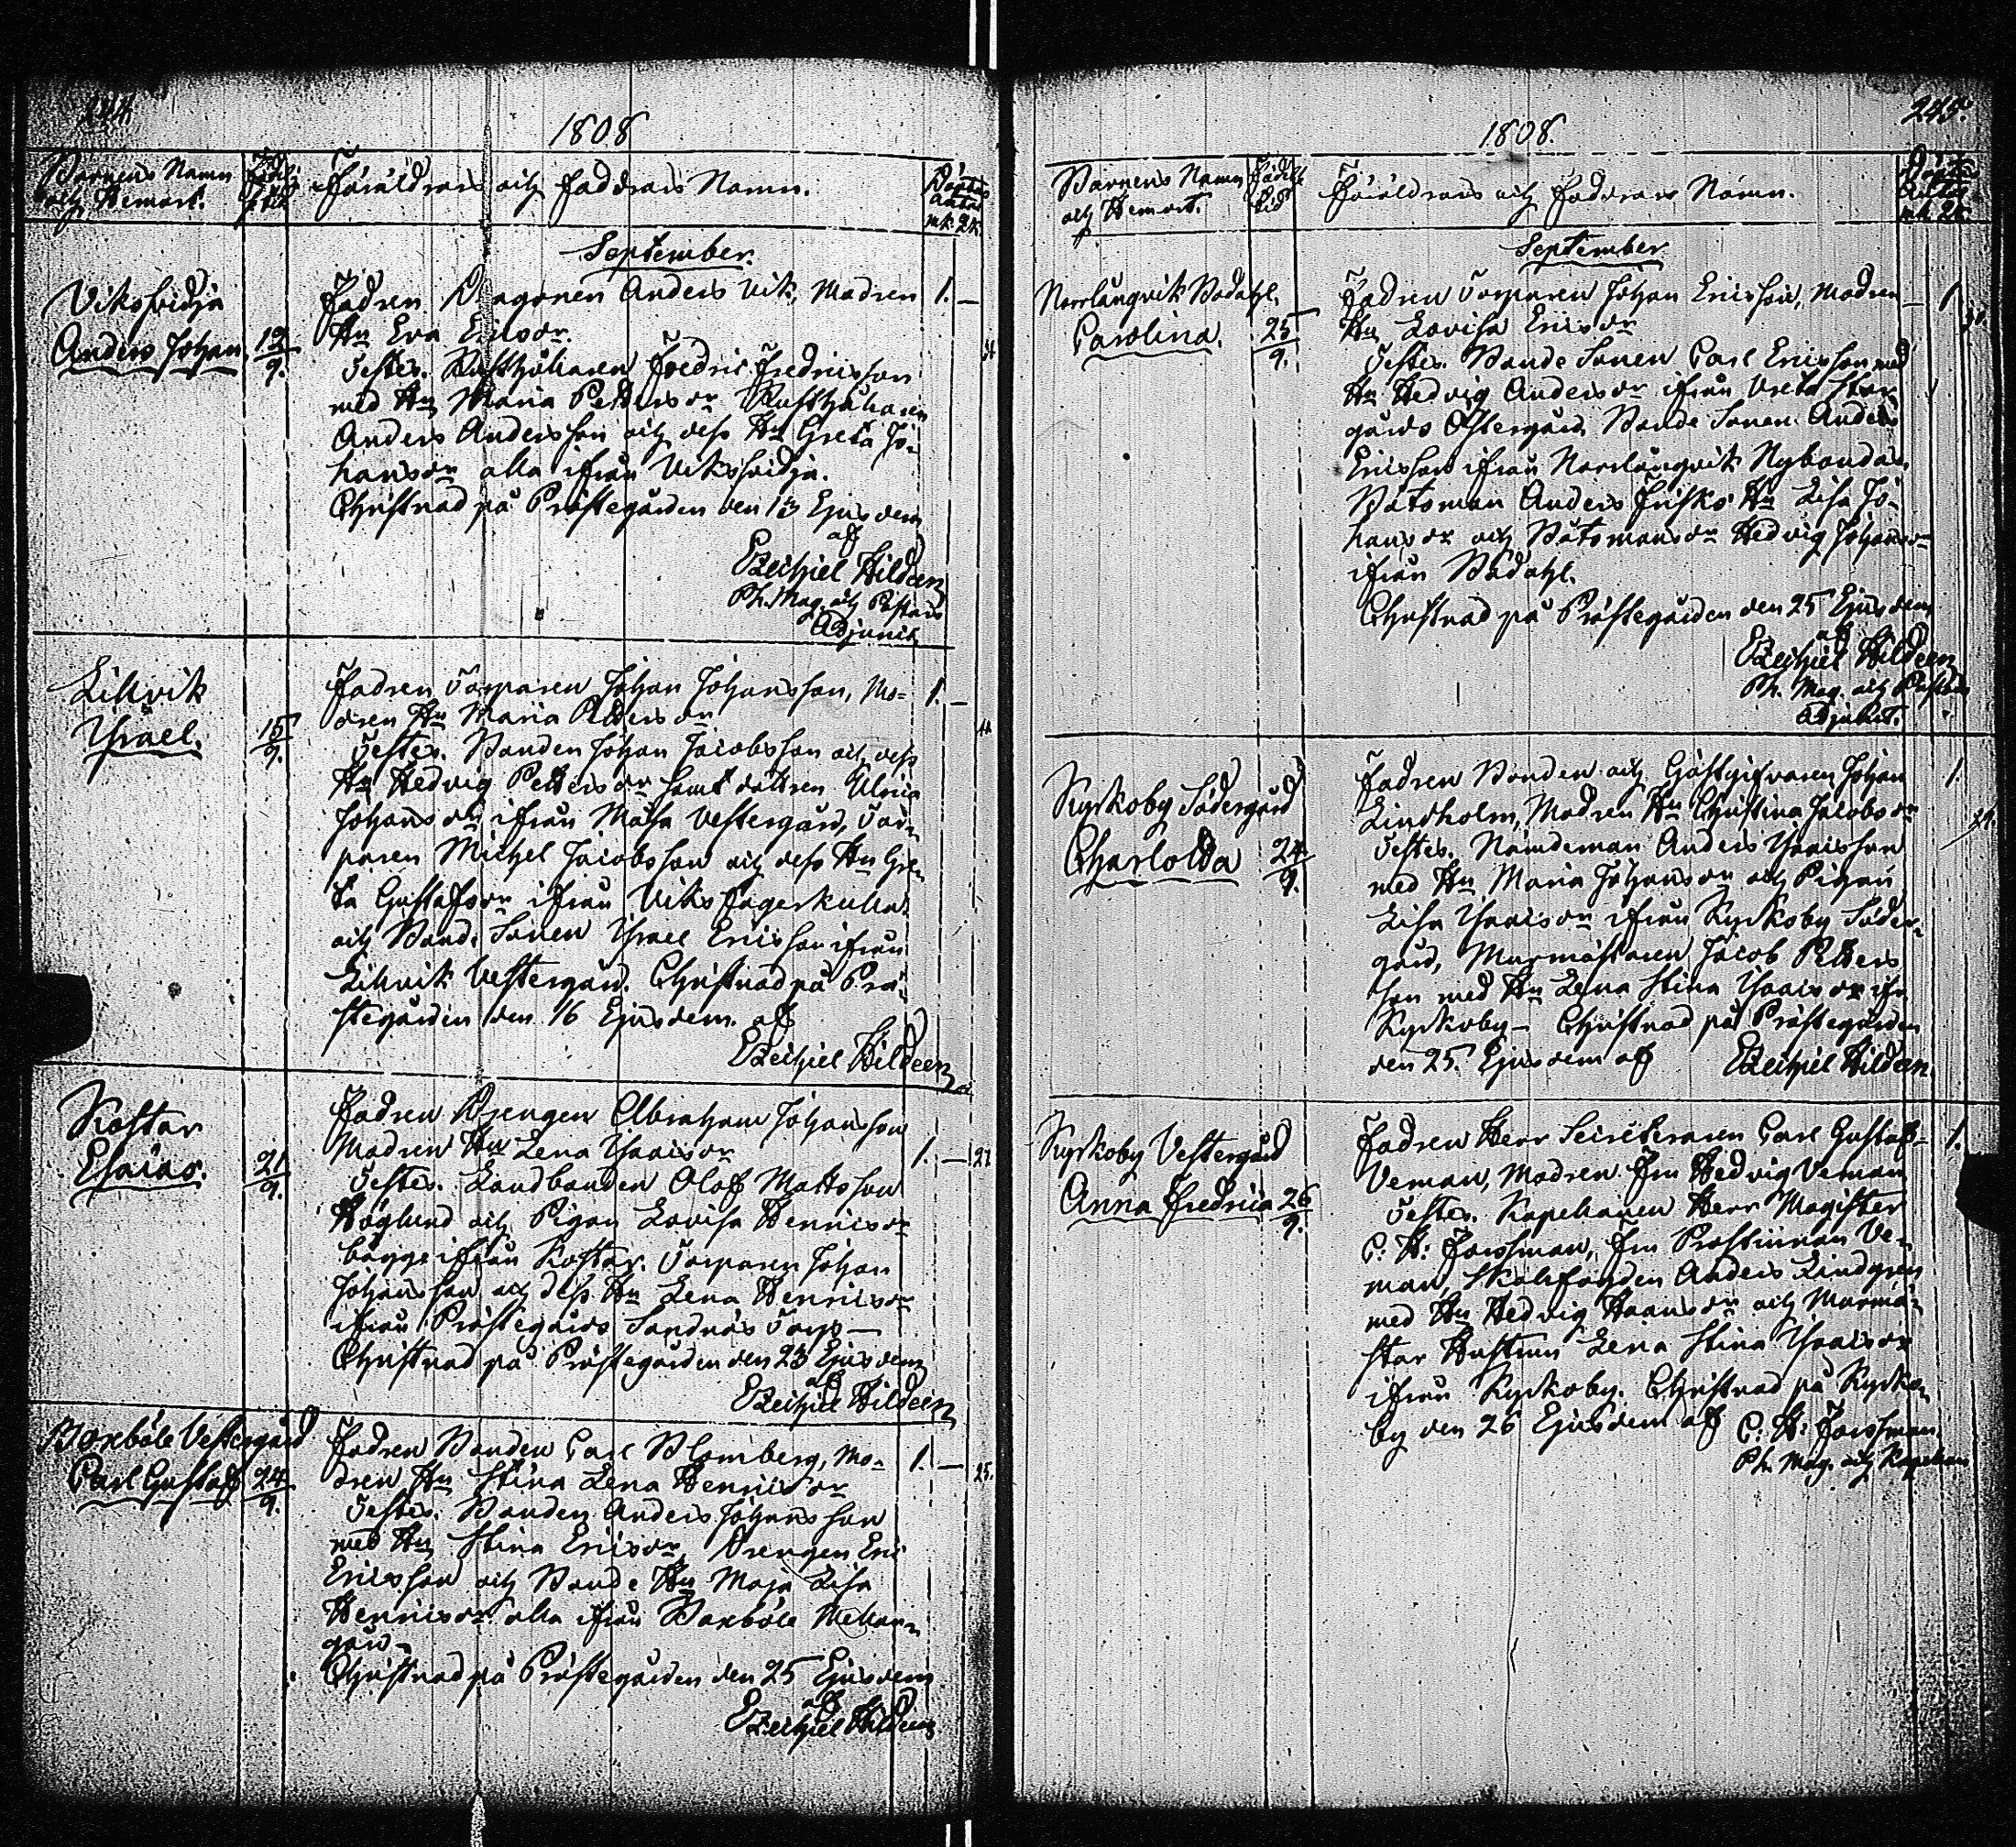 244.
1808
Barnens Namn
och Hemort.
Födel.
Föräldrars och Faddrars Namn.
Döptas
Antal
mk. qk.
September.
Viksvidja
Anders Johan.
12/9.
Fadren Dragonen Anders Vik, Modren
Hu Eva Ericsdr.
Testes. Rusthållaren Fredric Fredricsson
med Hu Maria Pettersdr Rusthållaren
Anders Andersson och dess Hu Greta Jo-
hansdr alla ifrån Viksvidja.
Christnad på Prästegården den 13 Ejusdem
af
Ezechiel Hildeen
Ph. Mag. och Pastors
Adjunct
1. —
Lillvik
Israel.
15/9.
Fadren Torparen Johan Johansson, Mo-
dren Hu Maria Pettersdr
Testes. Bonden Johan Jacobsson och dess
Hu Hedvig Pettersdr samt dottren Ulrica
Johansdr ifrån Måsa Vestergård, Tor-
paren Michel Jacobsson och dess Hu Gre-
ta Gustafsdr ifrån Viks Fagerkulla
och Bonde Sonen Israel Ericsson ifrån
Lillvik Vestergård. Christnad på Prä-
stegården den 16 Ejusdem. af
Ezechiel Hildeen
1. —
Kostar
Esaias.
21/9.
Fadren Drengen Abraham Johansson
Modren Hu Lena Isaacsdr
Testes. Landbonden Olof Mattsson
Höglund och Pigan Lovisa Henricsdr
bägge ifrån Kostar. Torparen Johan
Johansson och dess Hu Lena Henricsdr
ifrån Prästegårds Sandnäs Torp —
Christnad på Prästegården den 23 Ejusdem
af
Ezechiel Hildeen
1. —
Boxböle Vestergård
Carl Gustaf
24/9.
Fadren Bonden Carl Blomberg, Mo-
dren Hu Stina Lena Henricsdr
Testes. Bonden Anders Johansson
med Hu Stina Ericsdr, Drengen Eric
Ericsson och Bonde Hu Maja Lisa
Henricsdr alla ifrån Boxböle Mellan-
gård —
Christnad på Prästegården den 25 Ejusdem
af
Ezechiel Hildeen
1. — 25.
245.
1808.
Barnens Namn
och Hemort.
Födelse
tid
Föräldrars och Faddrars Namn.
Döptas
Antal
mk. qk.
September.
Norrlångvik Dadahl.
Carolina.
25/9.
Fadren Torparen Johan Ericsson, Modren
Hu Lovisa Ericsdr
Testes. Bonde Sonen Carl Ericsson med
Hu Hedvig Andersdr ifrån Vreta Stor
gårds Östergård Bonde Sonen Anders
Ericsson ifrån Norrlångvik Nybondas
Båtsman Anders Frisks Hu Lisa Jo-
hansdr och Båtsmansdr Hedvig Johansdr
ifrån Dadahl.
Christnad på Prästegården den 25 Ejusdem
af
Ezechiel Hildeen
Ph. Mag. och Pastors
Adjunct.
1
Kyrkoby Södergård
Charlotta
24/9.
Fadren Bonden och Gästgifvaren Johan
Lindholm, Modren Hu Christina Jacobsdr
Testes. Nämdeman Anders Isaacsson
med Hu Maria Johansdr och Pigan
Lisa Isaacsdr ifrån Kyrkoby Söder-
gård, Murmästaren Jacob Petters
son med Hu Lena Stina Isaacsdr ifr.
Kyrkoby — Christnad på Prästegården
den 25. Ejusdem af Ezechiel Hildeen.
1.
Kyrkoby Vestergård
Anna Fredrica
26/9.
Fadren Herr Secreteraren Carl Gustaf
Veman, Modren Fru Hedvig Veman
Testes. Kapellanen Herr Magister
C: H: Forssman, Fru Prostinnan Ve-
man, Skallfogden Anders Lindgren
med Hu Hedvig Hansdr och Murmä-
star Hustrun Lena Stina Isaacsdr
ifrån Kyrkoby. Christnad på Kyrko-
by den 26 Ejusdem af C: H: Forssman.
Ph. Mag. och Kapellan
1.